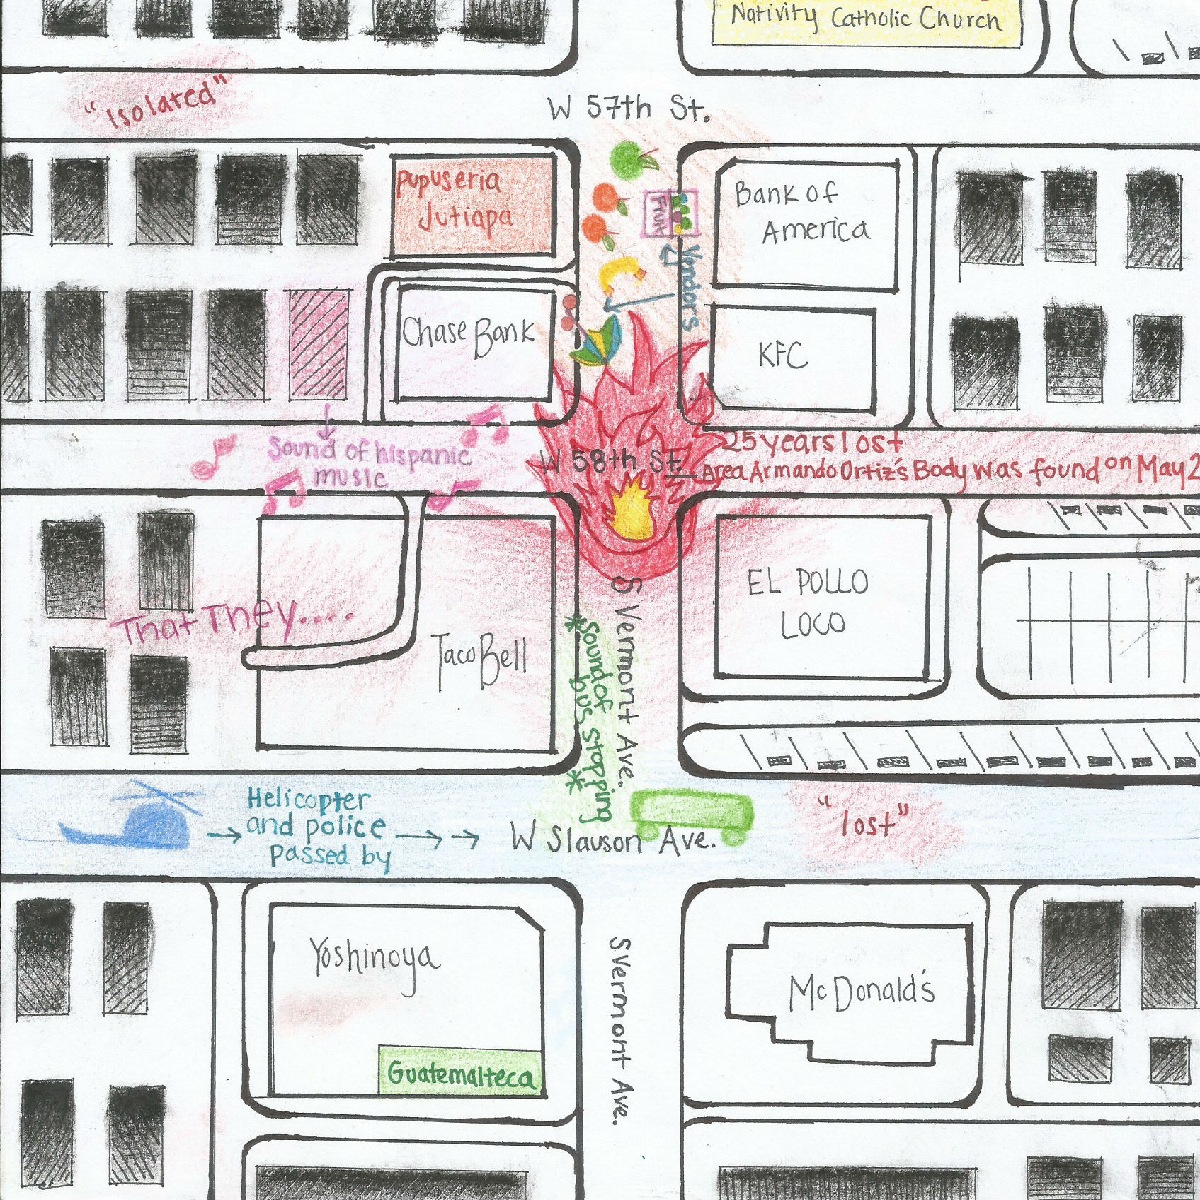 Nativity Catholic Church
"Isolated"
W 57th St.
pupuseria
Jutiapa
Fruit
Vendors
Bank of
America
Chase Bank
KFC
Sound of hispanic
music
W 58th St.
25 years lost
Area Armando Ortiz's Body was found on May 2
That They....
Taco Bell
EL POLLO
LOCO
S Vermont Ave.
*Sound of
bus stopping*
Helicopter
and police
passed by
W Slauson Ave.
"lost"
Yoshinoya
Guatemalteca
S Vermont Ave.
McDonald's